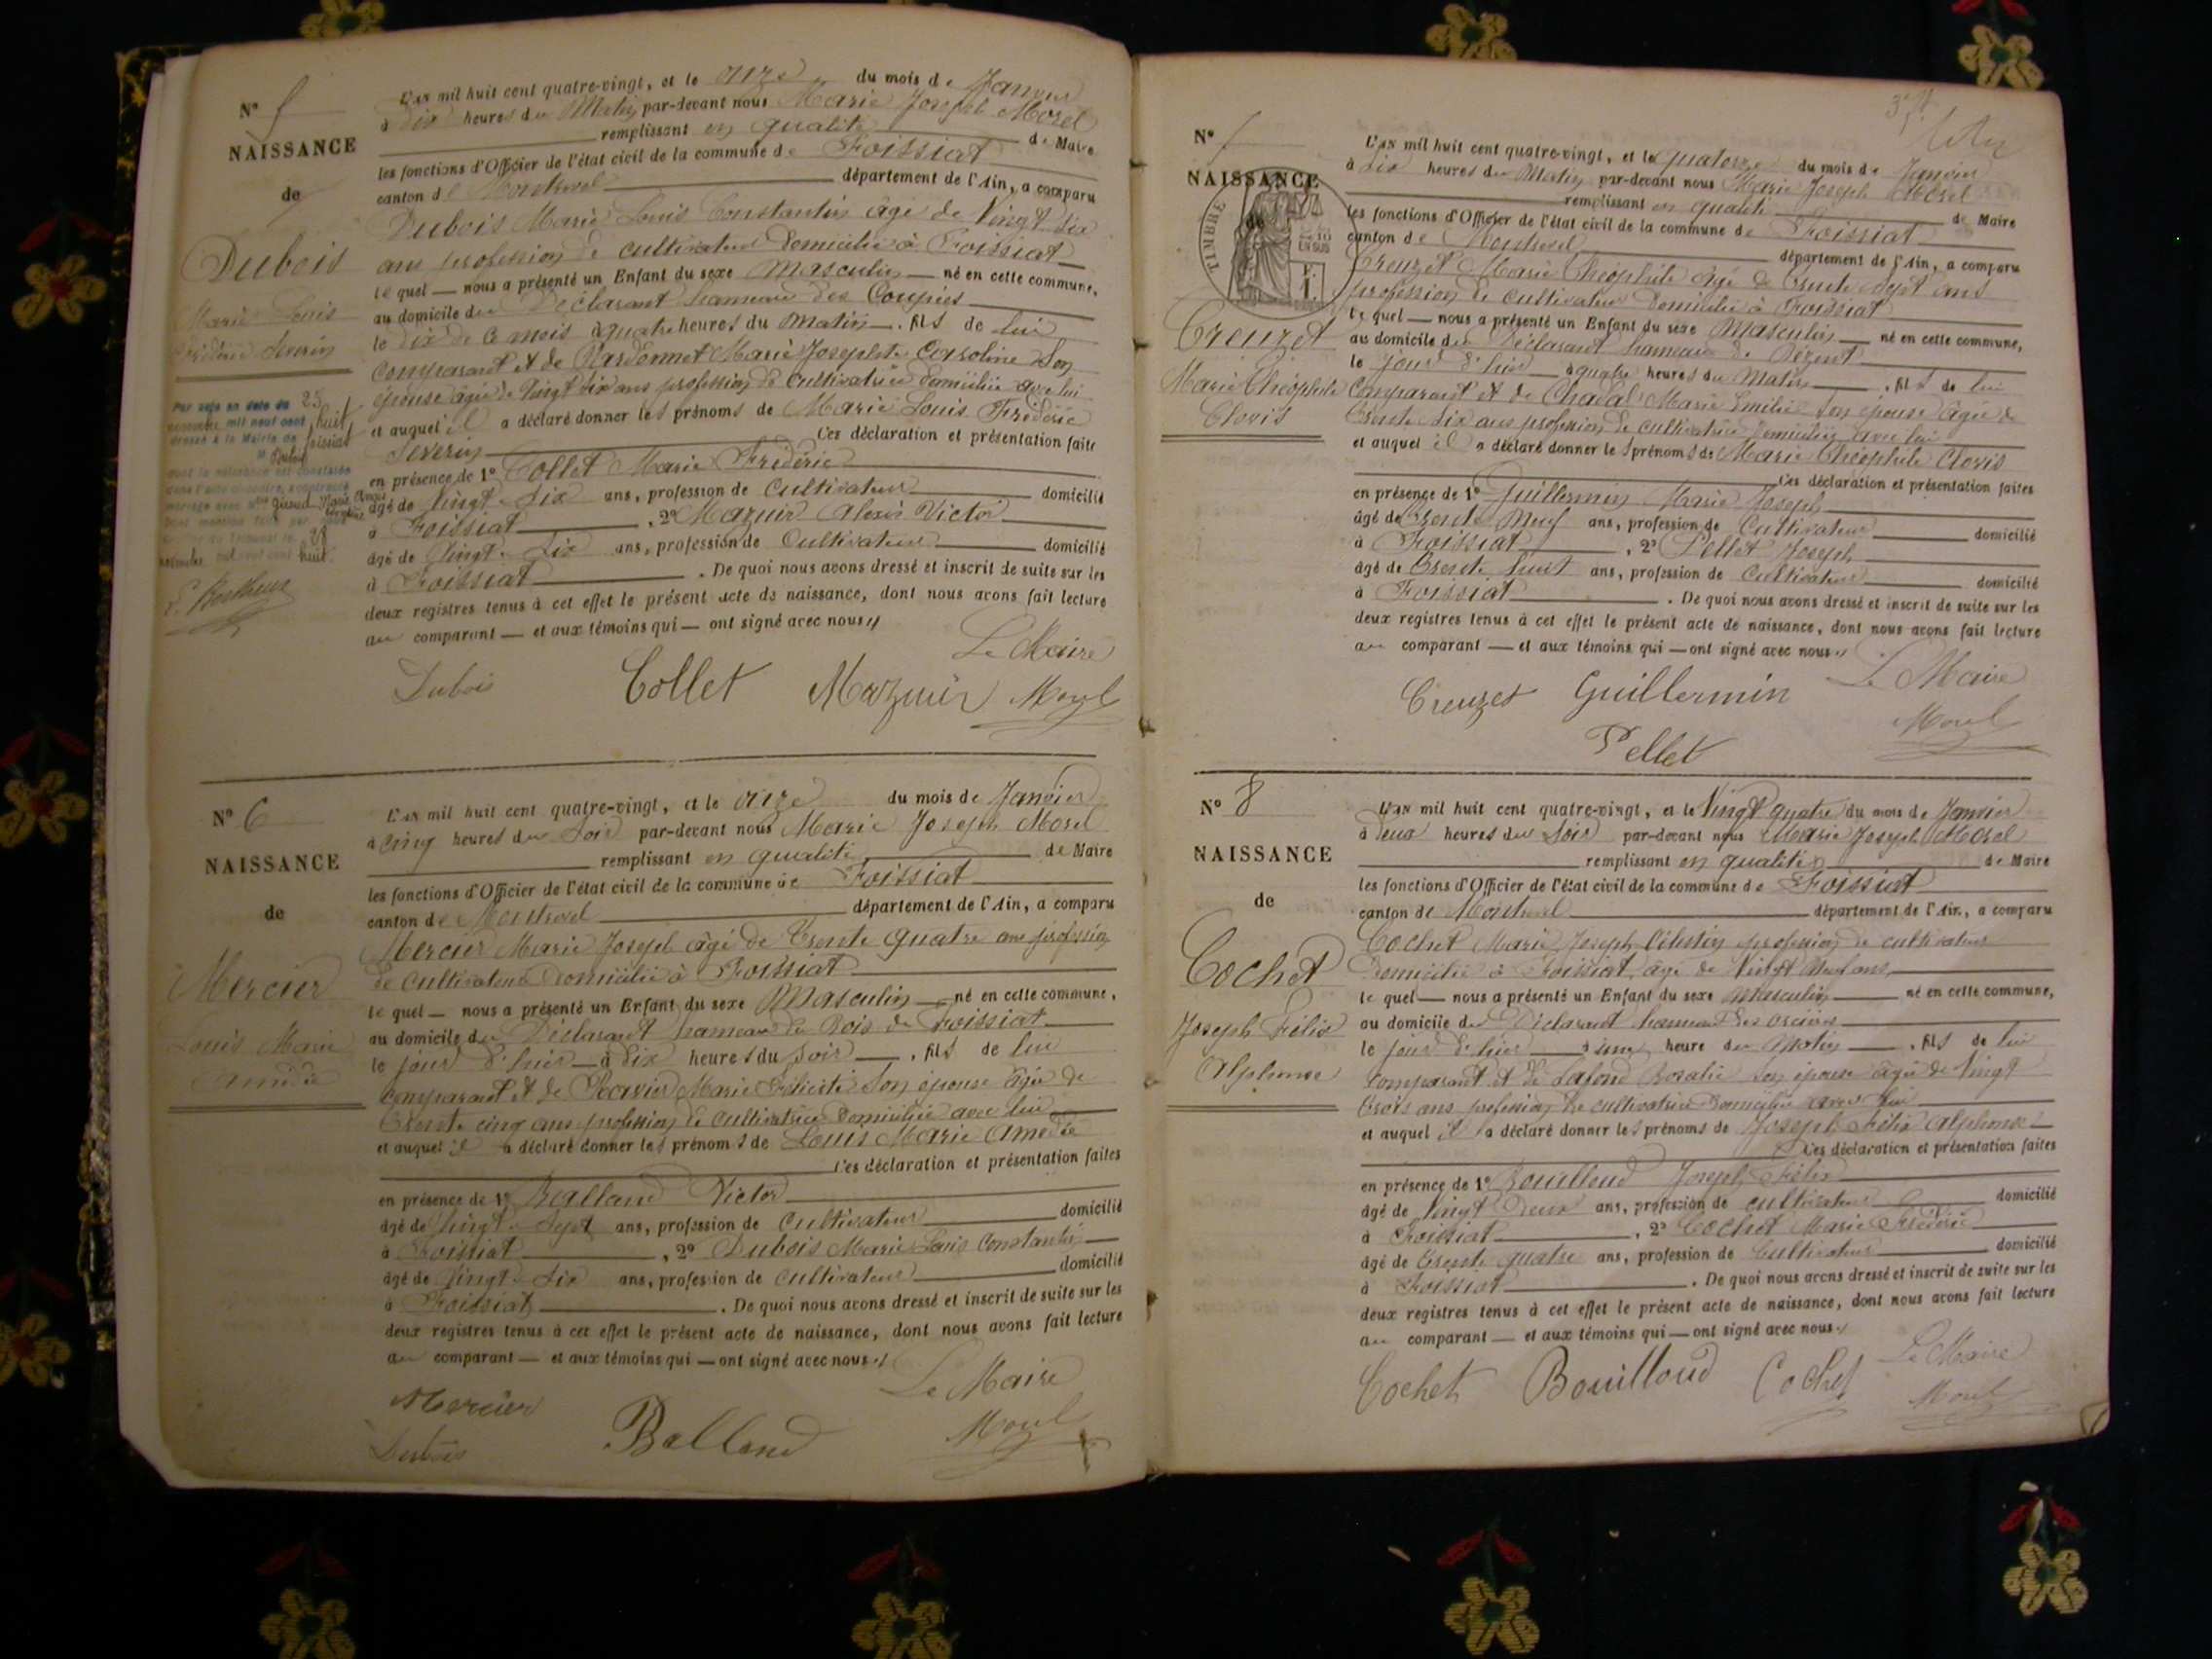 N° 5
NAISSANCE
de
Dubois
Marie Louis
Frédéric Severin
Par acte en date du 25
novembre mil neuf cent huit
dressé à la Mairie de Foissiat
le Dubois
dont la naissance est constatée
dans l'acte ci-contre, a contracté
mariage avec
huit
L'an mil huit cent quatre-vingt, et le onze du mois de Janvier
à dix heures du Matin par-devant nous Marie Joseph Morel
remplissant en qualité de Maire
les fonctions d'Officier de l'état civil de la commune de Foissiat
canton de Montrevel département de l'Ain, a comparu
Dubois Marie Louis Constantin âgé de Vingt six
ans profession de cultivateur domicilié à Foissiat
lequel — nous a présenté un Enfant du sexe Masculin — né en cette commune,
au domicile du Déclarant hameau des Coupies
le dix de ce mois à quatre heures du Matin — . fils de lui
Comparant et de Mardonnet Marie Josephte Caroline Son
épouse âgée de Vingt six ans profession de cultivatrice domiciliée avec lui
et auquel il a déclaré donner les prénoms de Marie Louis Frédéric
Severin Ces déclaration et présentation faite
en présence de 1° Collet Marie Frédéric
âgé de Vingt-Six ans, profession de Cultivateur domicilié
à Foissiat , 2° Mazuir Alexis Victor
âgé de Vingt-Six ans, profession de Cultivateur domicilié
à Foissiat . De quoi nous avons dressé et inscrit de suite sur les
deux registres tenus à cet effet le présent acte de naissance, dont nous avons fait lecture
au comparant — et aux témoins qui — ont signé avec nous
Le Maire
Dubois Collet Mazuir Morel
N° 6
NAISSANCE
de
Mercier
Louis Marie
Amédée
L'an mil huit cent quatre-vingt, et le onze du mois de Janvier
à cinq heures du Soir par-devant nous Marie Joseph Morel
remplissant en qualité de Maire
les fonctions d'Officier de l'état civil de la commune de Foissiat
canton de Montrevel département de l'Ain, a comparu
Mercier Marie Joseph âgé de Trente quatre ans profession
de cultivateur domicilié à Foissiat
lequel — nous a présenté un Enfant du sexe Masculin — né en cette commune,
au domicile du Déclarant hameau du Bois de Foissiat
le jour d'hier — à dix heures du soir — , fils de lui
Comparant et de Marie Félicité Son épouse âgée de
Trente cinq ans profession de cultivatrice domiciliée avec lui
et auquel il a déclaré donner les prénoms de Louis Marie Amédée
Ces déclaration et présentation faites
en présence de 1° Balland Victor
âgé de Vingt-Sept ans, profession de Cultivateur domicilié
à Foissiat , 2° Dubois Marie Louis Constantin
âgé de Vingt-Six ans, profession de cultivateur domicilié
à Foissiat . De quoi nous avons dressé et inscrit de suite sur les
deux registres tenus à cet effet le présent acte de naissance, dont nous avons fait lecture
au comparant — et aux témoins qui — ont signé avec nous
Le Maire
Mercier Balland Morel
Dubois
N° 7
NAISSANCE
de
TIMBRE
Creuzet
Marie Théophile
Clovis
L'an mil huit cent quatre-vingt, et le quatorze du mois de Janvier
à dix heures du Matin par-devant nous Marie Joseph Morel
remplissant en qualité de Maire
les fonctions d'Officier de l'état civil de la commune de Foissiat
canton de Montrevel département de l'Ain, a comparu
Creuzet Marie Théophile âgé de Trente Sept ans
profession de cultivateur domicilié à Foissiat
lequel — nous a présenté un Enfant du sexe Masculin — né en cette commune,
au domicile du Déclarant hameau de Dézent
le jour d'hier — à quatre heures du Matin — , fils de lui
Comparant et de Chadal Marie Emilie Son épouse âgée de
Trente six ans profession de cultivatrice domiciliée avec lui
et auquel il a déclaré donner les prénoms de Marie Théophile Clovis
Ces déclaration et présentation faites
en présence de 1° Guillermin Marie Joseph
âgé de Trente Neuf ans, profession de Cultivateur domicilié
à Foissiat , 2° Pellet Joseph
âgé de Trente huit ans, profession de Cultivateur domicilié
à Foissiat . De quoi nous avons dressé et inscrit de suite sur les
deux registres tenus à cet effet le présent acte de naissance, dont nous avons fait lecture
au comparant — et aux témoins qui — ont signé avec nous
Le Maire
Creuzet Guillermin Morel
Pellet
N° 8
NAISSANCE
de
Cochet
Joseph Félix
Alphonse
L'an mil huit cent quatre-vingt, et le Vingt quatre du mois de Janvier
à deux heures du Soir par-devant nous Marie Joseph Morel
remplissant en qualité de Maire
les fonctions d'Officier de l'état civil de la commune de Foissiat
canton de Montrevel département de l'Ain, a comparu
Cochet Marie Joseph Célestin profession de cultivateur
Domicilié à Foissiat, âgé de Vingt Neuf ans,
lequel — nous a présenté un Enfant du sexe Masculin né en cette commune,
au domicile du Déclarant hameau des
le jour d'hier — à une heure du Matin — , fils de lui
comparant et de Lafond Rosalie Son épouse âgée de Vingt
trois ans profession de cultivatrice domiciliée avec lui
et auquel il a déclaré donner les prénoms de Joseph Félix Alphonse
Ces déclaration et présentation faites
en présence de 1° Bouilloud Joseph Félix
âgé de Vingt Deux ans, profession de cultivateur domicilié
à Foissiat , 2° Cochet Marie Frédéric
âgé de Trente quatre ans, profession de Cultivateur domicilié
à Foissiat . De quoi nous avons dressé et inscrit de suite sur les
deux registres tenus à cet effet le présent acte de naissance, dont nous avons fait lecture
au comparant — et aux témoins qui — ont signé avec nous
Le Maire
Cochet Bouilloud Cochet Morel